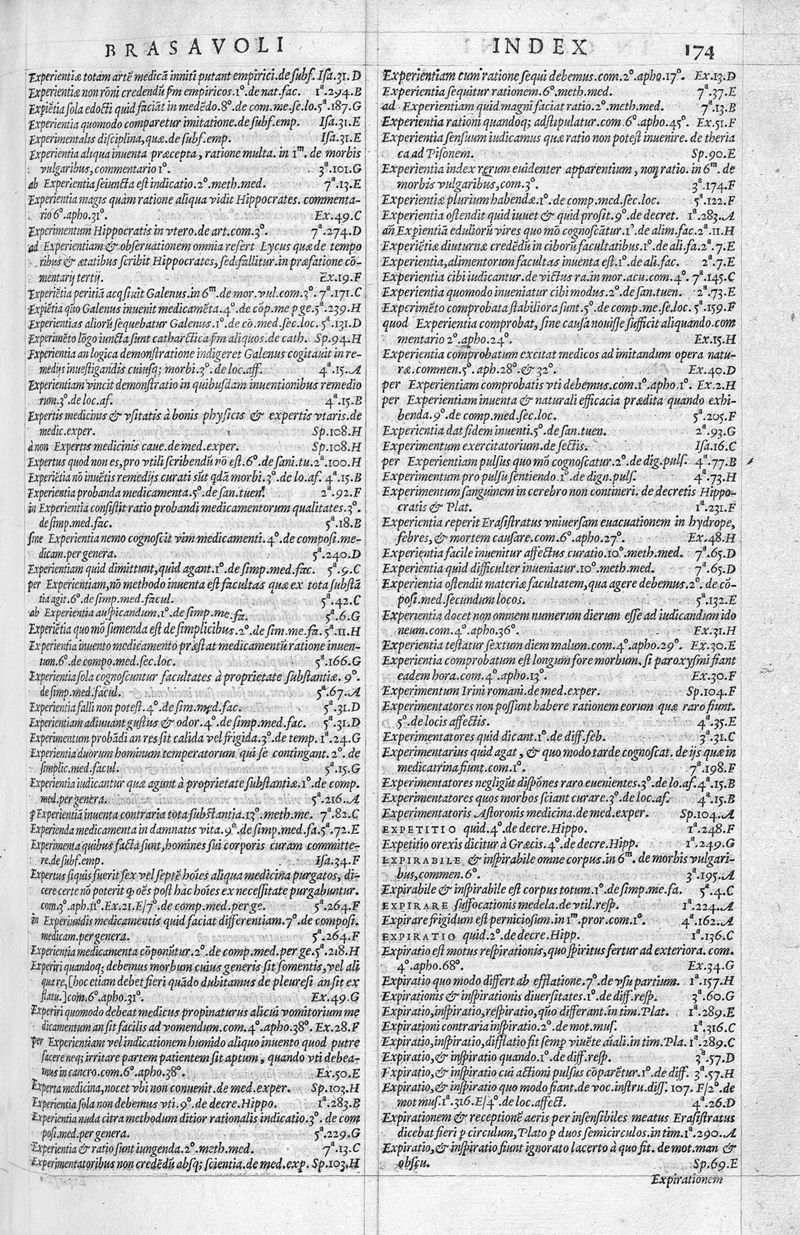 BRASAVOLI
Experientiæ totam artē medicā inniti putant empirici. de subf. Isa.31.D
Experientiæ non rōni credendū ſm empiricos.1º. de nat.fac. 1ª.294.B
Expiētia ſola edocti quid faciāt in medēdo.8º.de com.me.ſe.lo.5ª.187.G
Experientia quomodo comparetur imitatione.de ſubf.emp. Iſa.31.E
Experimentalis diſciplina, quæ.de ſubf.emp. Iſa.31.E
Experientia aliqua inuenta præcepta, ratione multa. in 1m. de morbis
vulgaribus, commentario 1º. 3ª.101.G
ab Experientia ſeiuncta eſt indicatio.2º.meth.med. 7ª.13.E
Experientia magis quàm ratione aliqua vidit Hippocrates. commenta-
rio 6º.apho.31º. Ex.49.C
Experimentum Hippocratis in vtero.de art.com.3º. 7ª.274.D
ad Experientiam & obſeruationem omnia refert Lycus quæ de tempo
ribus & ætatibus ſcribit Hippocrates, ſed fallitur.in præfatione cō-
mentarij tertij. Ex.19.F
Experientiæ peritiā acqſiuit Galenus.in 6m.de mor.vul.com.3º. 7ª.171.C
Expiētia quo Galenus inuenit medicamēta.4º.de cōp.me p ge.5ª.239.H
Experientias alioru ſequebatur Galenus.1º.de cō.med.ſec.loc. 5ª.131.D
Experimēto lōgo iuncta ſunt cathartica ſm aliquos.de cath. Sp.94.H
Experientia an logica demonſtratione indigeret Galenus cogitauit in re-
medijs inueſtigandis cuiuſq; morbi.3º.de loc.aff. 4ª.15.A
Experientiam vincit demonſtratio in quibuſdam inuentionibus remedio
rum.3º.de loc.af. 4ª.15.B
Expertis medicinis & vſitatis à bonis phyſicis & expertis vtaris.de
medic.exper. Sp.108.H
à non Expertus medicinis caue.de med.exper. Sp.108.H
Expertus quod non es, pro vtili ſcribendū nō eſt.6º.de ſani.tu.2ª.100.H
Expiētia nō inuētis remedijs curati sūt qdā morbi.3º.de lo.af. 4ª.15.B
Experientia probanda medicamenta.5º.de ſan.tuen. 2ª.92.F
in Experientia conſiſtit ratio probandi medicamentorum qualitates.3º.
de ſimp.med.fac. 5ª.18.B
ſine Experientia nemo cognoſcit vim medicamenti.4º.de compoſi.me-
dicam.per genera. 5ª.240.D
Experientiam quid dimittunt, quid agant.1º.de ſimp.med.fac. 5ª.9.C
per Experientiam, nō methodo inuenta eſt facultas quæ ex tota ſubſtā
tia agit.6º.de ſimp.med.facul. 5ª.42.C
ab Experientia auſpicandum.1º.de ſimp.me.fa. 5ª.6.G
Experiētia quo mō ſumenda eſt de ſimplicibus.2º.de ſim.me.fa. 5ª.11.H
Experientia inuento medicamento præſtat medicamentū ratione inuen-
tum.6º.de compo.med.ſec.loc. 5ª.166.G
Experientia ſola cognoſcuntur facultates à proprietate ſubſtantiæ. 9º.
de ſimp.med.facul. 5ª.67.A
Experientia falli non poteſt.4º.de ſim.med.fac. 5ª.31.D
Experientiam adiuuant guſtus & odor.4º.de ſimp.med.fac. 5ª.31.D
Experimentum probādi an res ſit calida vel frigida.3º.de temp. 1ª.24.G
Experientia duorum hominum temperatorum qui ſe contingant.2º. de
ſimplic.med.facul. 5ª.15.G
Experientia iudicantur quæ agunt à proprietate ſubſtantiæ.1º.de comp.
med.per genera. 5ª.216.A
p Experientiā inuenta contraria tota ſubſtantia.13º.meth.me. 7ª.82.C
Experienda medicamenta in damnatis vita.9º.de ſimp.med.fa.5ª.72.E
Experimenta quibus facta ſunt, homines ſui corporis curam committe-
re, de ſubf.emp. Iſa.34.F
Expertus ſi quis fuerit ſex vel ſeptē hoīes aliqua medicina purgatos, di-
cere certe nō poterit q oēs poſt hac hoīes ex neceſſitate purgabuntur.
com.4º.aph.11º.Ex.21.E/7º.de comp.med.per ge. 5ª.264.F
in Experiundis medicamentis quid faciat differentiam.7º.de compoſi.
medicam.per genera. 5ª.264.F
Experientia medicamenta cōponūtur.2º.de comp.med.per ge.5ª.218.H
Experiri quandoq; debemus morbum cuius generis ſit fomentis, vel ali
qua re, [hoc etiam debet fieri quādo dubitamus de pleureſi an ſit ex
flatu.] com.6º.apho.31º. Ex.49.G
Experiri quomodo debeat medicus propinaturus alicui vomitorium me
dicamentum an ſit facilis ad vomendum.com.4º.apho.38º. Ex.28.F
per Experientiam vel indicationem humido aliquo inuento quod putre
facere neq; irritare partem patientem ſit aptum, quando vti debea-
mus in cancro.com.6º.apho.38º. Ex.50.E
Experta medicina, nocet vbi non conuenit.de med.exper. Sp.103.H
Experientia ſola non debemus vti.9º.de decre.Hippo. 1ª.283.B
Experientia nuda citra methodum ditior rationalis indicatio.3º.de com
poſi.med.per genera. 5ª.229.G
Experientia & ratio ſunt iungenda.2º.meth.med. 7ª.13.C
Experimentatoribus non credēdū abſq; ſcientia.de med.exp. Sp.103.H
INDEX 174
Experientiam cum ratione ſequi debemus.com.2º.apho.17º. Ex.13.D
Experientia ſequitur rationem.6º.meth.med. 7ª.37.E
ad Experientiam quid magni faciat ratio.2º.meth.med. 7ª.13.B
Experientia rationi quandoq; adſtipulatur.com.6º.apho.45º. Ex.51.F
Experientia ſenſuum iudicamus quæ ratio non poteſt inuenire. de theria
ca ad Piſonem. Sp.90.E
Experientia index rerum euidenter apparentium, non ratio. in 6m. de
morbis vulgaribus, com.3º. 3ª.174.F
Experientiæ plurium habendæ.1º.de comp.med.ſec.loc. 5ª.122.F
Experientia oſtendit quid iuuet & quid proſit.9º.de decret. 1ª.283.A
an Expientiā edulioru vires quo mō cognoſcātur.1º.de alim.fac.2ª.11.H
Experiētiæ diuturnæ credēdū in ciborū facultatibus.1º.de ali.fa.2ª.7.E
Experientia, alimentorum facultas inuenta eſt.1º.de ali.fac. 2ª.7.E
Experientia cibi iudicantur.de victus ra.in mor.acu.com.4º. 7ª.145.C
Experientia quomodo inueniatur cibi modus.2º.de ſan.tuen. 2ª.73.E
Experimēto comprobata ſtabiliora ſunt.5º.de comp.me.ſe.loc. 5ª.159.F
quod Experientia comprobat, ſine cauſa nouiſſe ſufficit aliquando.com
mentario 2º.apho.24º. Ex.15.H
Experientia comprobatum excitat medicos ad imitandum opera natu-
ræ.commen.5º.aph.28º.& 32º. Ex.40.D
per Experientiam comprobatis vti debemus.com.1º.apho.1º. Ex.2.H
per Experientiam inuenta & naturali efficacia prædita quando exhi-
benda.9º.de comp.med.ſec.loc. 5ª.205.F
Experientia dat fidem inuenti.5º.de ſan.tuen. 2ª.93.G
Experimentum exercitatorium.de ſectis. Iſa.16.C
per Experientiam pulſus quo mō cognoſcatur.2º.de dig.pulſ. 4ª.77.B
Experimentum pro pulſu ſentiendo.1º.de dign.pulſ. 4ª.73.H
Experimentum ſanguinem in cerebro non contineri. de decretis Hippo-
cratis & Plat. 1ª.231.F
Experientia reperit Eraſiſtratus vniuerſam euacuationem in hydrope,
febres, & mortem cauſare.com.6º.apho.27º. Ex.48.H
Experientia facile inuenitur affectus curatio.10º.meth.med. 7ª.65.D
Experientia quid difficulter inueniatur.10º.meth.med. 7ª.65.D
Experientia oſtendit materiæ facultatem, qua agere debemus.2º.de cō-
poſi.med.ſecundum locos. 5ª.132.E
Experientia docet non omnem numerum dierum eſſe ad iudicandum ido
neum.com.4º.apho.36º. Ex.31.H
Experientia teſtatur ſextum diem malum.com.4º.apho.29º. Ex.30.E
Experientia comprobatum eſt longum fore morbum, ſi paroxyſmi fiant
eadem hora.com.4º.apho.13º. Ex.30.F
Experimentum Irini romani.de med.exper. Sp.104.F
Experimentatores non poſſunt habere rationem eorum quæ raro fiunt.
5º.de locis affectis. 4ª.35.E
Experimentatores quid dicant.1º.de diff.feb. 3ª.31.C
Experimentarius quid agat, & quo modo tarde cognoſcat.de ijs quæ in
medicatrina fiunt.com.1º. 7ª.198.F
Experimentatores negligūt diſpōnes raro euenientes.3º.de lo.af.4ª.15.B
Experimentatores quos morbos ſciant curare.3º.de loc.af. 4ª.15.B
Experimentatoris Aſtoronis medicina.de med.exper. Sp.104.A
EXPETITIO quid.4º.de decre.Hippo. 1ª.248.F
Expetitio orexis dicitur à Græcis.4º.de decre.Hipp. 1ª.249.G
EXPIRABILE & inſpirabile omne corpus.in 6m.de morbis vulgari-
bus, commen.6º. 3ª.195.A
Expirabile & inſpirabile eſt corpus totum.1º.de ſimp.me.fa. 5ª.4.C
EXPIRARE ſuffocationis medela.de vtil.reſp. 1ª.224.A
Expirare frigidum eſt pernicioſum.in 1m.pror.com.1º. 4ª.162.A
EXPIRATIO quid.2º.de decre.Hipp. 1ª.136.C
Expiratio eſt motus reſpirationis, quo ſpiritus fertur ad exteriora. com.
4º.apho.68º. Ex.34.G
Expiratio quo modo differt ab efflatione.7º.de vſu partium. 1ª.157.H
Expirationis & inſpirationis diuerſitates.1º.de diff.reſp. 3ª.60.G
Expiratio, inſpiratio, reſpiratio, quo differant.in tim.Plat. 1ª.289.E
Expirationi contraria inſpiratio.2º.de mot.muſ. 1ª.316.C
Expiratio, inſpiratio, difflatio fit ſemp viuēte aīali.in tim.Pla. 1ª.289.C
Expiratio, & inſpiratio quando.1º.de diff.reſp. 3ª.57.D
Expiratio, & inſpiratio cui actioni pulſus cōparētur.1º.de diff. 3ª.57.H
Expiratio, & inſpiratio quo modo fiant.de voc.inſtru.diſſ. 107. F/2º.de
mot muſ.1ª.316.E/4º.de loc.affect. 4ª.26.D
Expirationem & receptionē aeris per inſenſibiles meatus Eraſiſtratus
dicebat fieri p circulum, Plato p duos ſemicirculos.in tim.1ª.290.A
Expiratio, & inſpiratio fiunt ignorato lacerto à quo fit. de mot.man &
obſcu. Sp.69.E
Expirationem